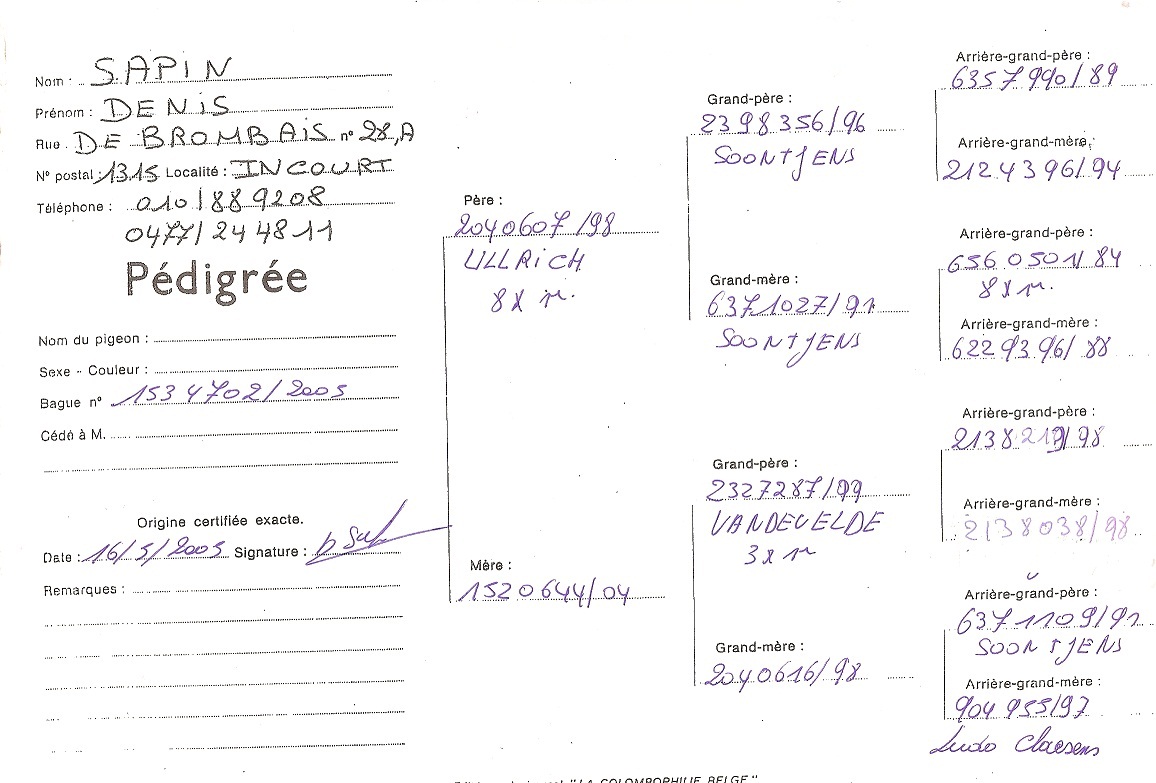 Nom : SAPIN
Prénom : DENIS
Rue DE BROMBAIS n° 28,A
N° postal : 1315 Localité : INCOURT
Téléphone : 010/889208
0477/244811
Pédigrée
Nom du pigeon :
Sexe - Couleur :
Bague n° 1534702/2005
Cédé à M.
Origine certifiée exacte.
Date : 16/5/2005 Signature :
Remarques :
Père :
2040607/98
ULLRICH
8X n.
Mère :
1520644/04
Grand-père :
2398356/96
SOONTJENS
Grand-mère :
6371027/91
SOONTJENS
Grand-père :
2327287/99
VANDEVELDE
3x n
Grand-mère :
2040616/98
Arrière-grand-père :
6357990/89
Arrière-grand-mère :
2124396/94
Arrière-grand-père :
6560501/84
8X n.
Arrière-grand-mère :
6229396/88
Arrière-grand-père :
2138219/98
Arrière-grand-mère :
2138038/98
Arrière-grand-père :
6371109/91
SOONTJENS
Arrière-grand-mère :
904955/97
Ludo Claesens
"LA COLOMBOPHILIE BELGE"